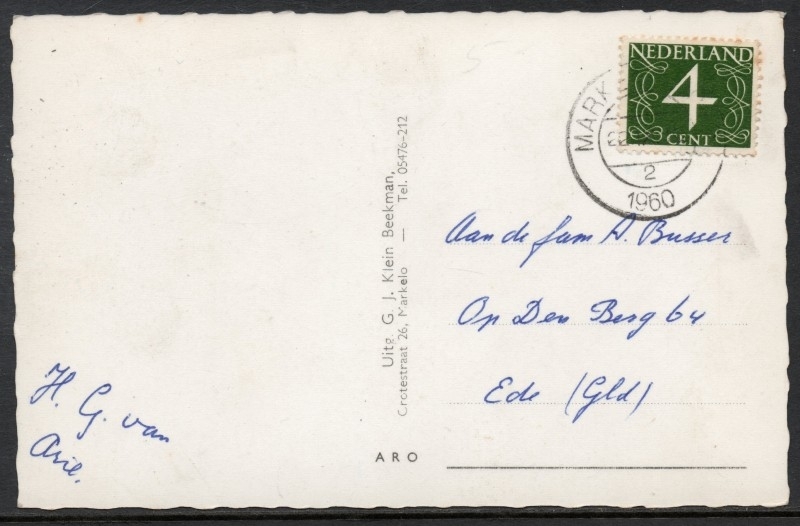 NEDERLAND
4
CENT
MARK
2
1960
Uitg. G. J. Klein Beekman,
Grotestraat 26, Markelo — Tel. 05476-212
Aan de fam A. Busser
Op Den Berg 64
Ede (Gld)
H. G. van
Arie.
ARO